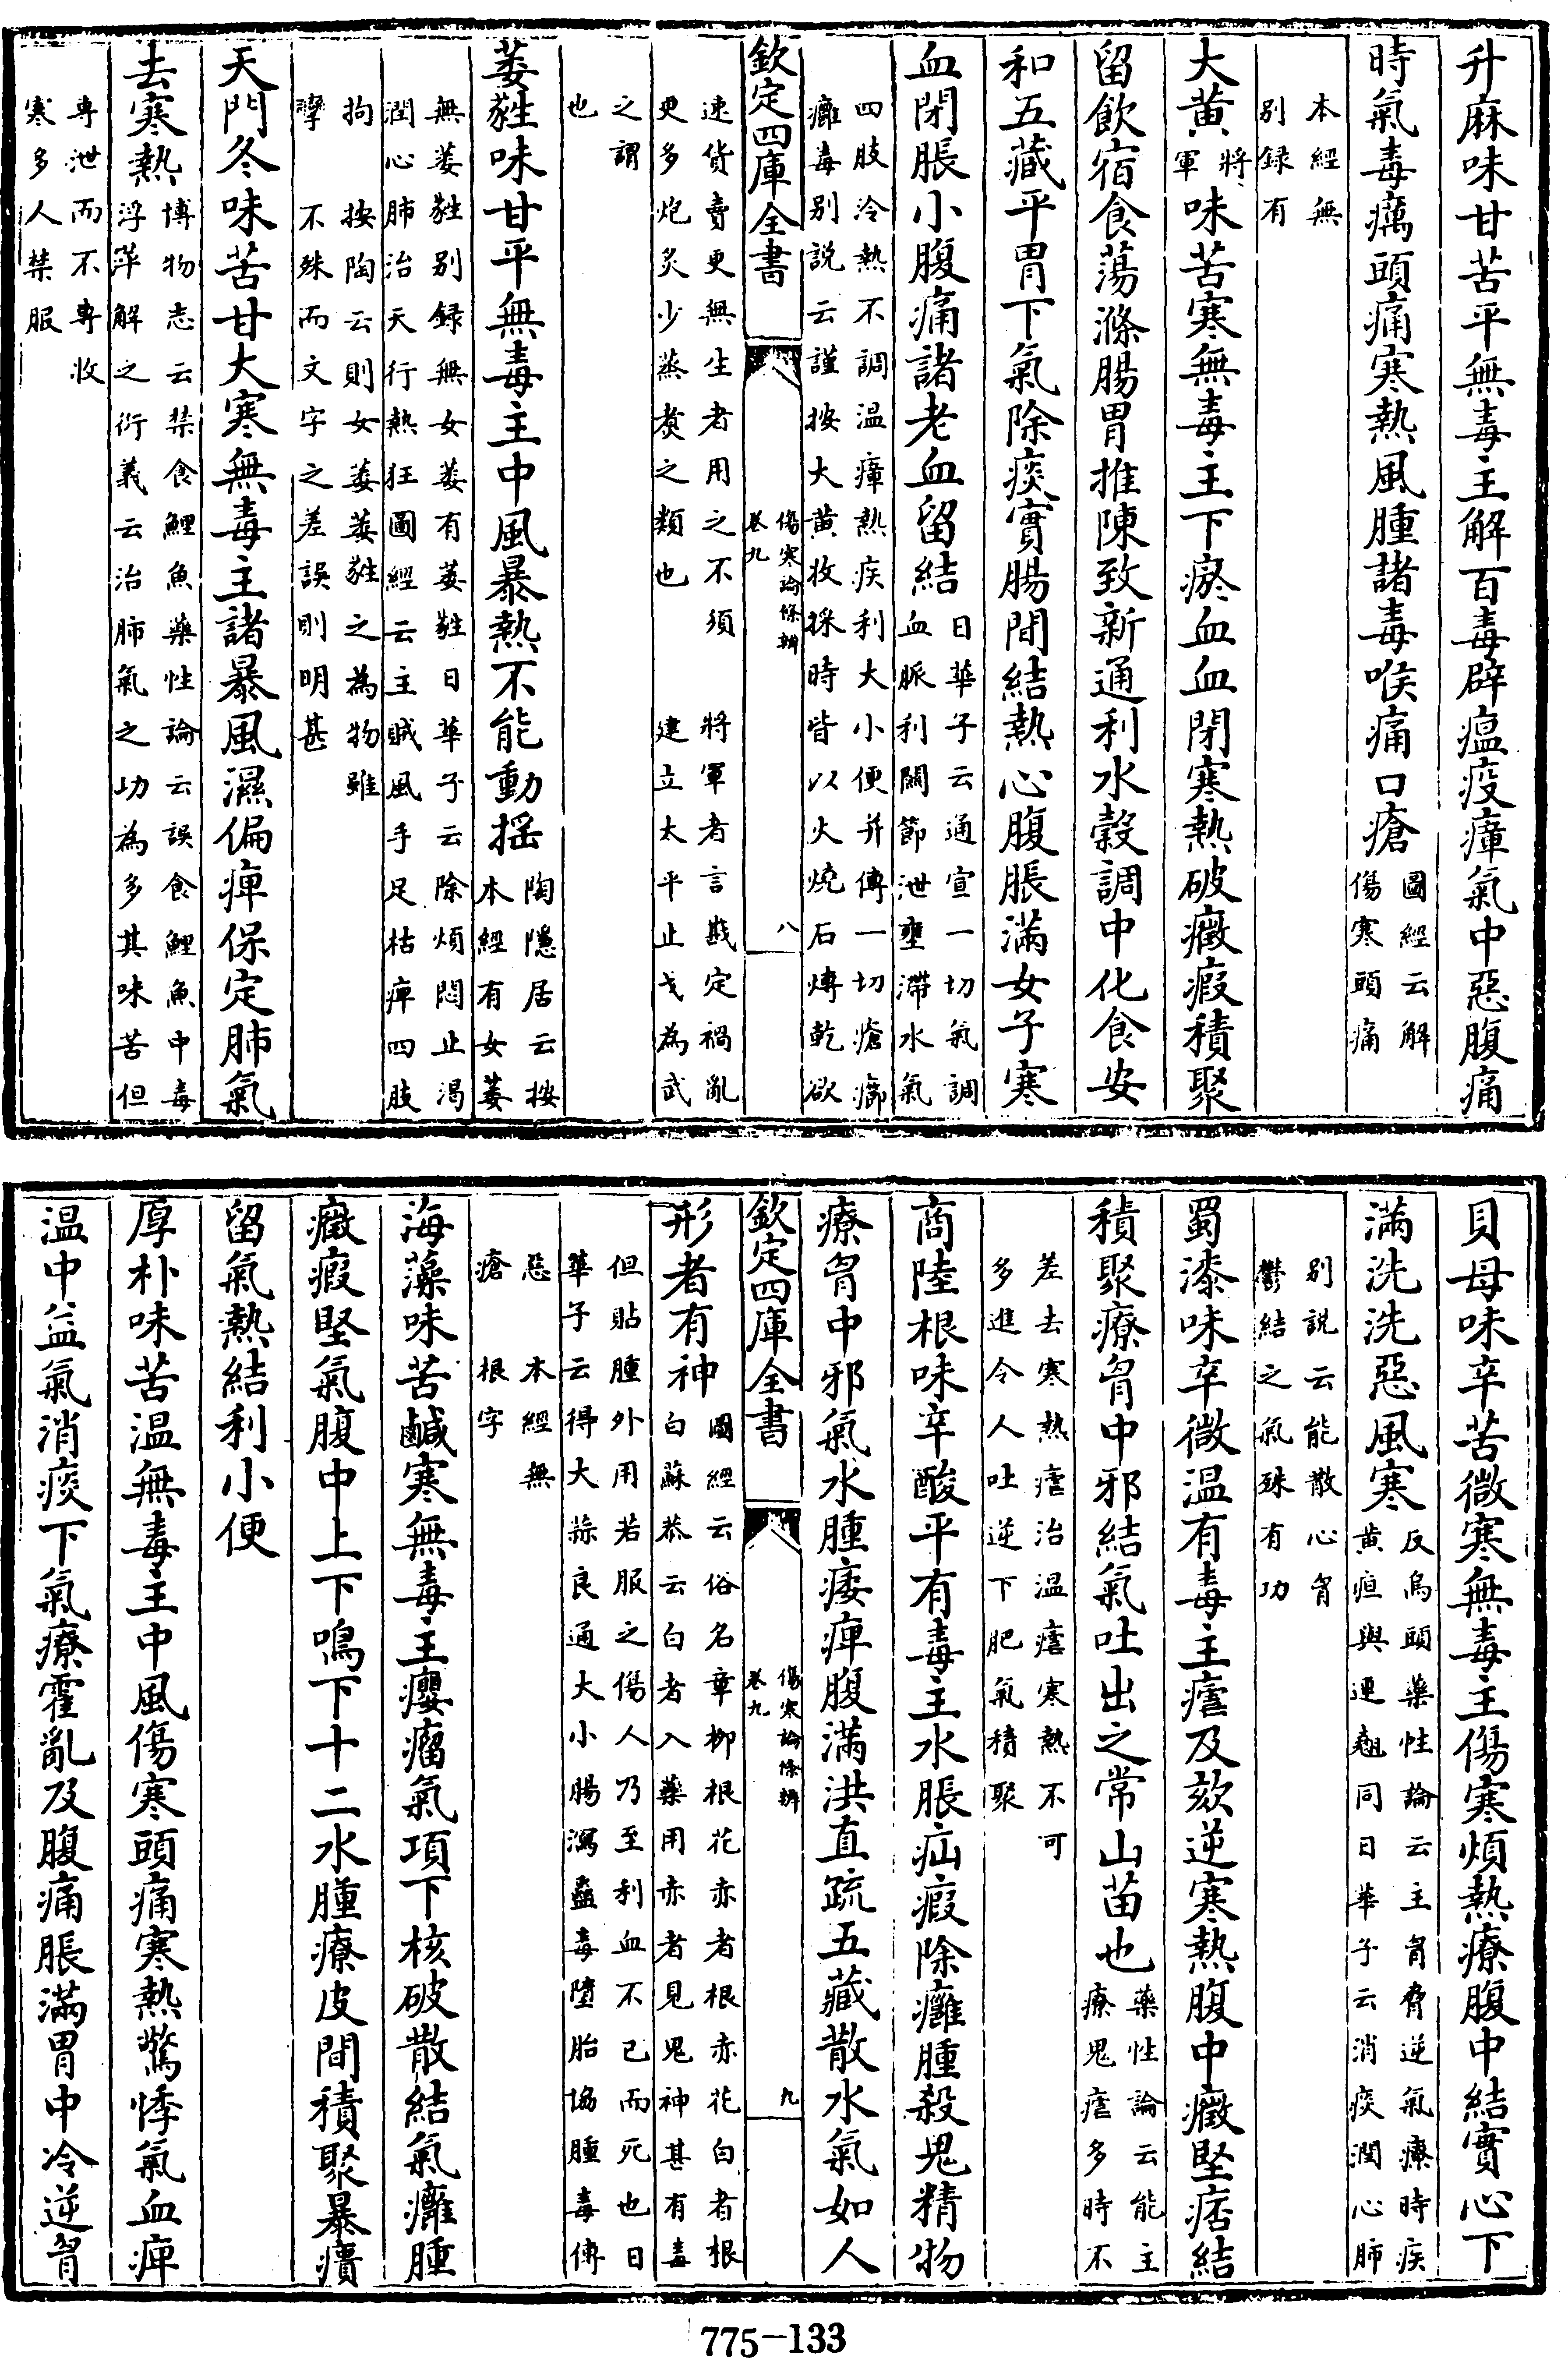 升麻味甘苦平無毒主解百毒辟瘟疫瘴氣中惡腹痛
時氣毒癘頭痛寒熱風腫諸毒喉痛口瘡圖經云解傷寒頭痛
本經無別録有
大黄將軍味苦寒無毒主下瘀血血閉寒熱破癥瘕積聚
留飲宿食蕩滌腸胃推陳致新通利水穀調中化食安
和五藏平胃下氣除痰實腸間結熱心腹脹滿女子寒
血閉脹小腹痛諸老血留結日華子云通宣一切氣調血脈利關節泄壅滯水氣
四肢冷熱不調温瘴熱疾利大小便并傅一切瘡癤癰毒别説云謹按大黄收採時皆以火燒石煿乾欲
欽定四庫全書
傷寒論條辨
卷九
八
速貨賣更無生者用之不須更多炮炙少蒸煑之類也
將軍者言戡定禍亂建立太平止戈為武
之謂也
萎蕤味甘平無毒主中風暴熱不能動摇陶隱居云按本經有女萎
無萎蕤别録無女萎有萎蕤日華子云除煩悶止渇潤心肺治天行熱狂圖經云主賊風手足枯痺四肢
拘攣
按陶云則女萎萎蕤之為物雖不殊而文字之差誤則明甚
天門冬味苦甘大寒無毒主諸暴風濕偏痺保定肺氣
去寒熱博物志云禁食鯉魚藥性論云誤食鯉魚中毒浮萍解之衍義云治肺氣之功為多其味苦但
專泄而不專收寒多人禁服
貝母味辛苦微寒無毒主傷寒煩熱療腹中結實心下
滿洗洗惡風寒反烏頭藥性論云主胷脅逆氣療時疾黄疸與連翹同日華子云消痰潤心肺
别説云能散心胷鬱結之氣殊有功
蜀漆味辛微温有毒主瘧及欬逆寒熱腹中癥堅痞結
積聚療胷中邪結氣吐出之常山苗也藥性論云能主療鬼瘧多時不
差去寒熱瘧治温瘧寒熱不可多進令人吐逆下肥氣積聚
商陸根味辛酸平有毒主水脹疝瘕除癰腫殺鬼精物
療胷中邪氣水腫痿痺腹滿洪直疏五藏散水氣如人
欽定四庫全書
傷寒論條辨
卷九
九
形者有神圖經云俗名章柳根花赤者根赤花白者根白蘇恭云白者入藥用赤者見鬼神甚有毒
但貼腫外用若服之傷人乃至利血不已而死也日華子云得大蒜良通大小腸瀉蠱毒墮胎㙝腫毒傅
惡瘡
本經無根字
海藻味苦鹹寒無毒主癭瘤氣項下核破散結氣癰腫
癥瘕堅氣腹中上下鳴下十二水腫療皮間積聚暴㿉
留氣熱結利小便
厚朴味苦温無毒主中風傷寒頭痛寒熱驚悸氣血痺
温中益氣消痰下氣療霍亂及腹痛脹滿胃中冷逆胷
775-133